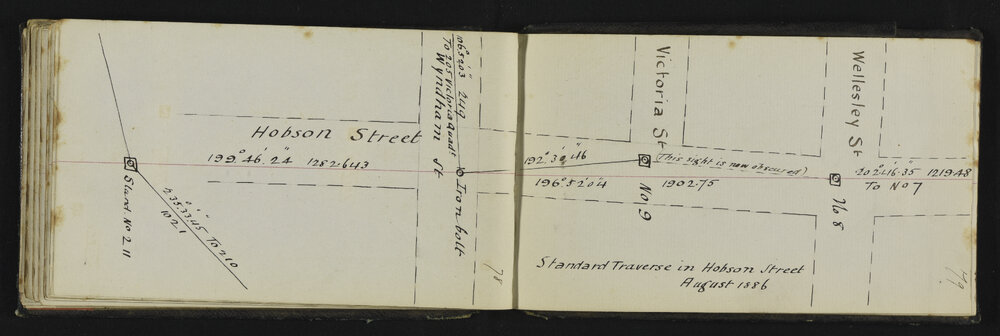 Hobson Street
199° 46' 24" 1282.643
Stand No 211
235.33.45 To 210
102.1
106.52.03 249
To 205 Victoria Quadt
Wyndham St
Iron bolt
78
192° 30' 46"
(This sight is now obscured)
196° 52' 04" 1902.75
Victoria St
No 9
Wellesley St
No 8
202° 16' 35" 1219.48
To No 7
Standard Traverse in Hobson Street
August 1886
79.